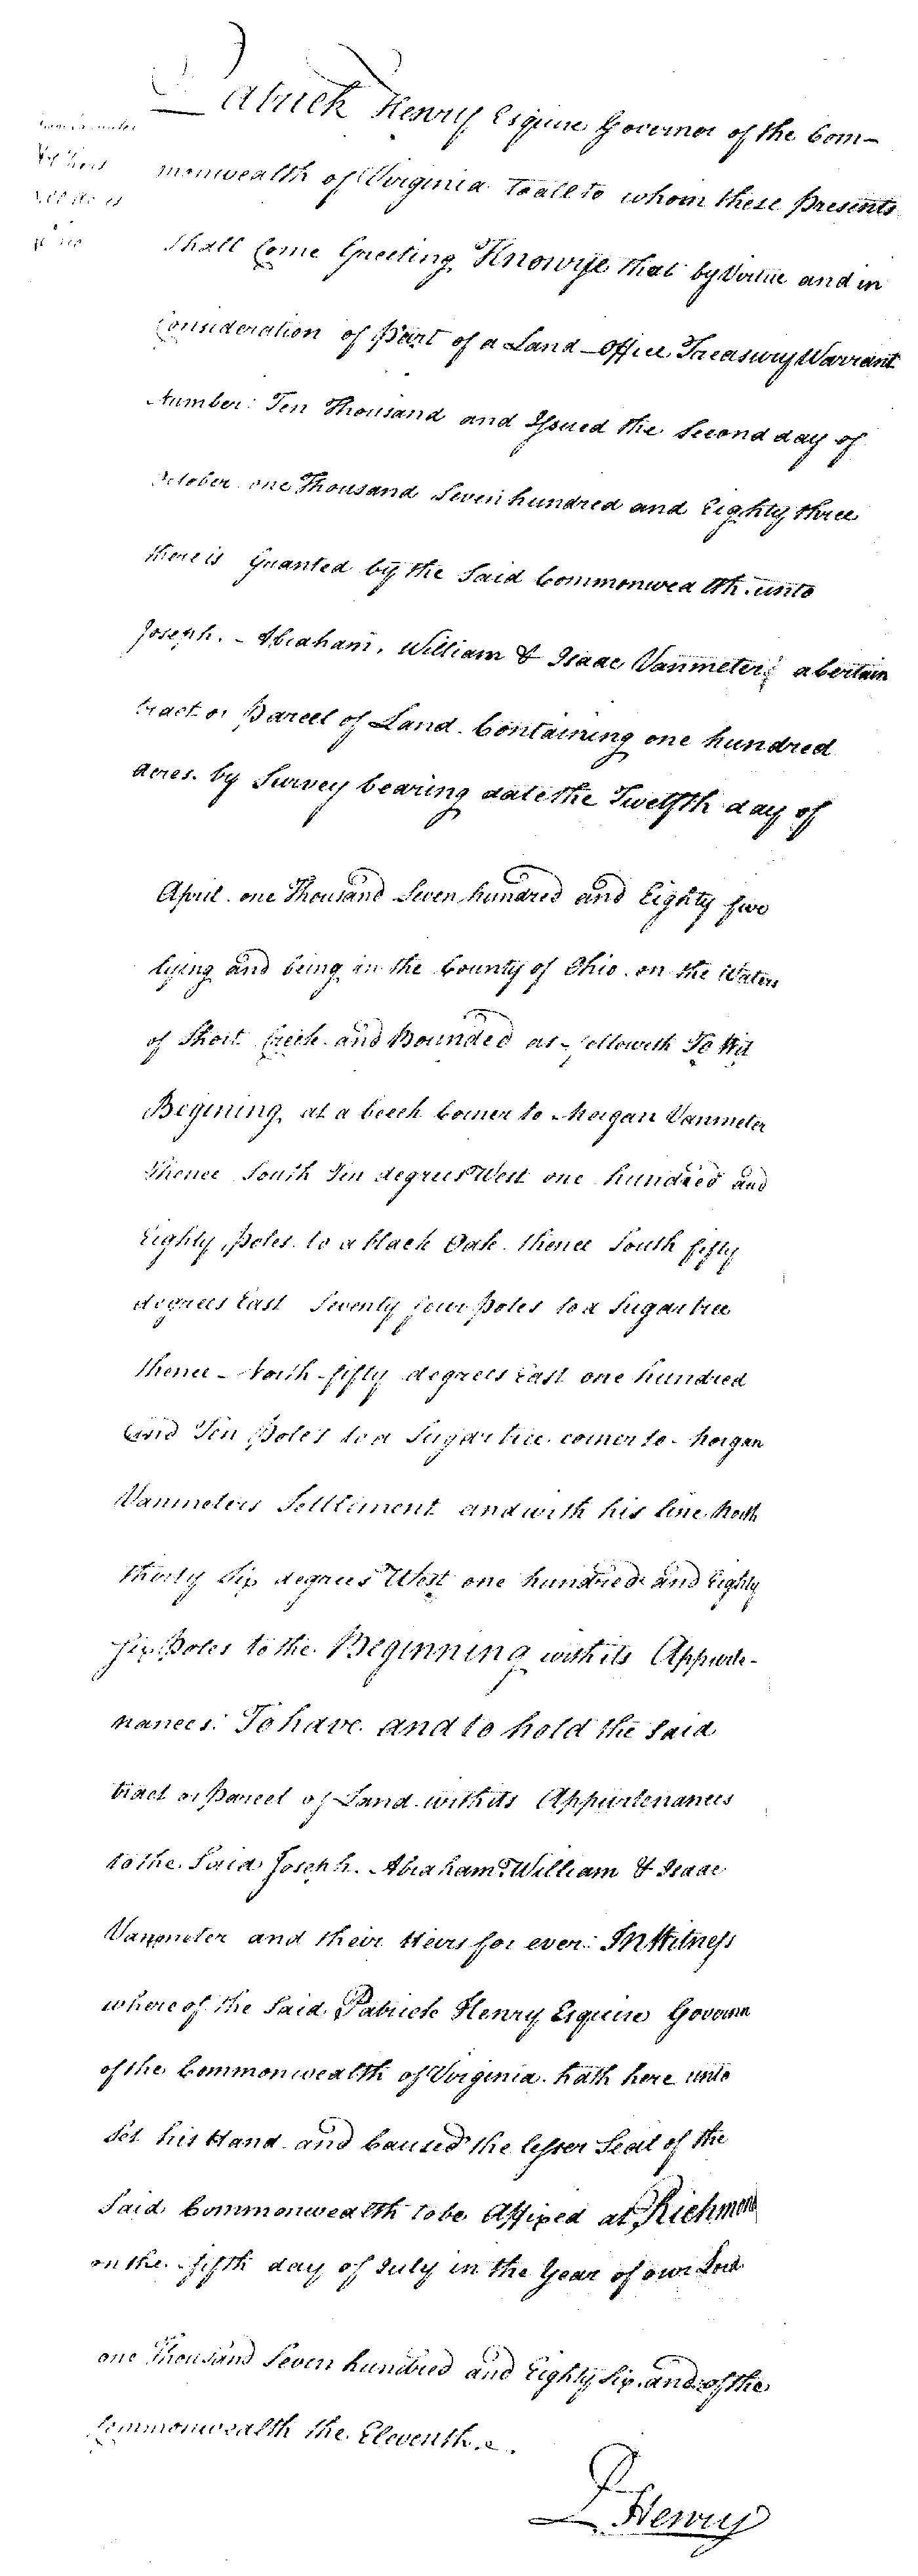 Patrick Henry Esquire Governor of the Com-
monwealth of Virginia to all to whom these presents
Shall Come Greeting Know ye that by Virtue and in
Consideration of Part of a Land-Office Treasury Warrant
Number Ten Thousand and Issued the Second day of
October one Thousand Seven hundred and Eighty three
there is Granted by the Said Commonwealth unto
Joseph. Abraham, William & Isaac Vanmeter; a Certain
tract or Parcel of Land Containing one hundred
acres by Survey bearing date the Twelfth day of
April one Thousand Seven hundred and Eighty five
lying and being in the County of Ohio on the Waters
of Short Creek and Bounded as followeth To Wit
Begining at a beech Corner to Morgan Vanmeter
thence South Ten degrees West one hundred and
Eighty Poles to a black Oak thence South fifty
degrees East Seventy four poles to a Sugartree
thence North fifty degrees East one hundred
and Ten Poles to a Sugartree corner to Morgan
Vanmeters Settlement and with his line North
thirty Six degrees West one hundred and Eighty
Six Poles to the Beginning with its Appurte-
nances: To have and to hold the Said
tract or Parcel of Land with its Appurtenances
to the Said Joseph. Abraham William & Isaac
Vanmeter and their Heirs for ever: In Witness
where of the Said Patrick Henry Esquire Governor
of the Commonwealth of Virginia hath here unto
Set his Hand and Caused the lesser Seal of the
Said Commonwealth to be Affixed at Richmond
on the fifth day of July in the Year of our Lord
one Thousand Seven hundred and Eighty Six and of the
Commonwealth the Eleventh.
P Henry